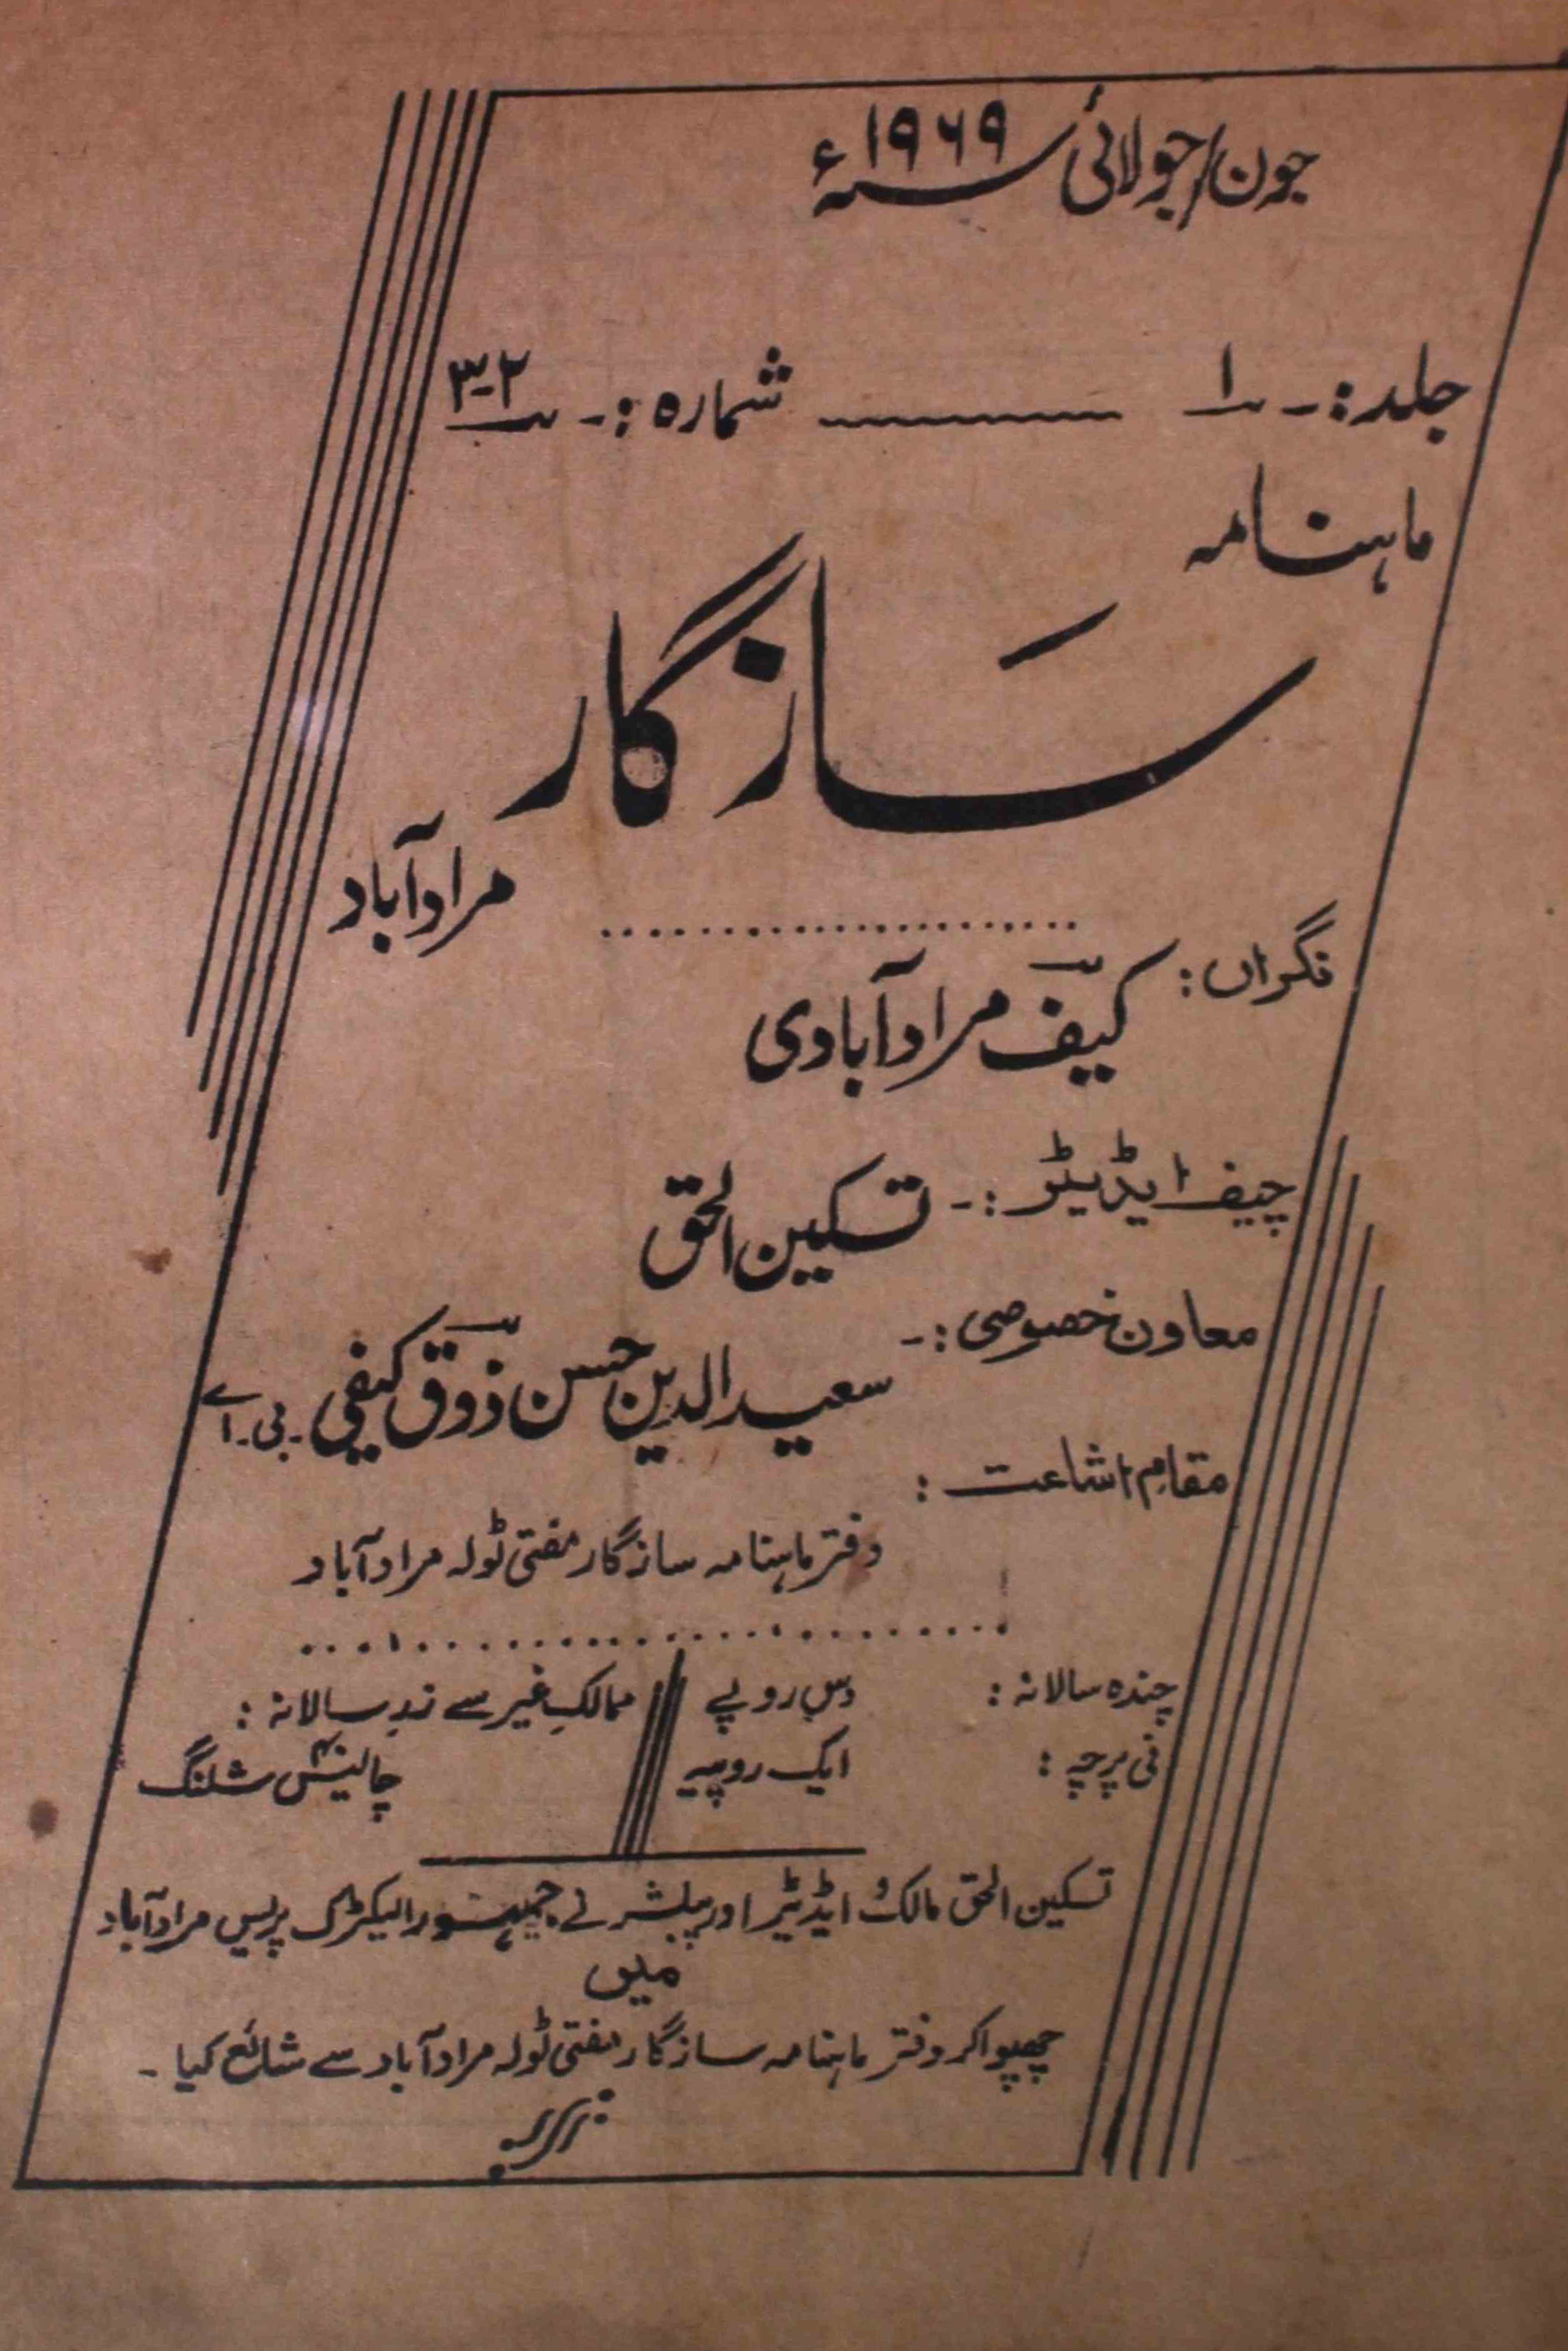 جون/جولائی سنہ ۱۹۶۹ء
جلد :۔ ۱ شمارہ :۔ ۲۔۳
ماہنامہ
سَازگار
مرادآباد
نگراں :
کیفؔ مرادآبادی
چیف ایڈیٹر :۔ تسکین الحق
معاون خصوصی :۔
سعید الدین حسن ذوقؔ کیفی ۔بی۔اے
مقامِ اشاعت :
دفتر ماہنامہ سازگار مفتی ٹولہ مرادآباد
چندہ سالانہ : دس روپے ممالکِ غیر سے زرِ سالانہ :
فی پرچہ : ایک روپیہ چالیس شلنگ
تسکین الحق مالک و ایڈیٹر اور پبلشر نے جمہور الیکٹرک پریس مرادآباد
میں
چھپوا کر دفتر ماہنامہ سازگار مفتی ٹولہ مرادآباد سے شائع کیا ۔